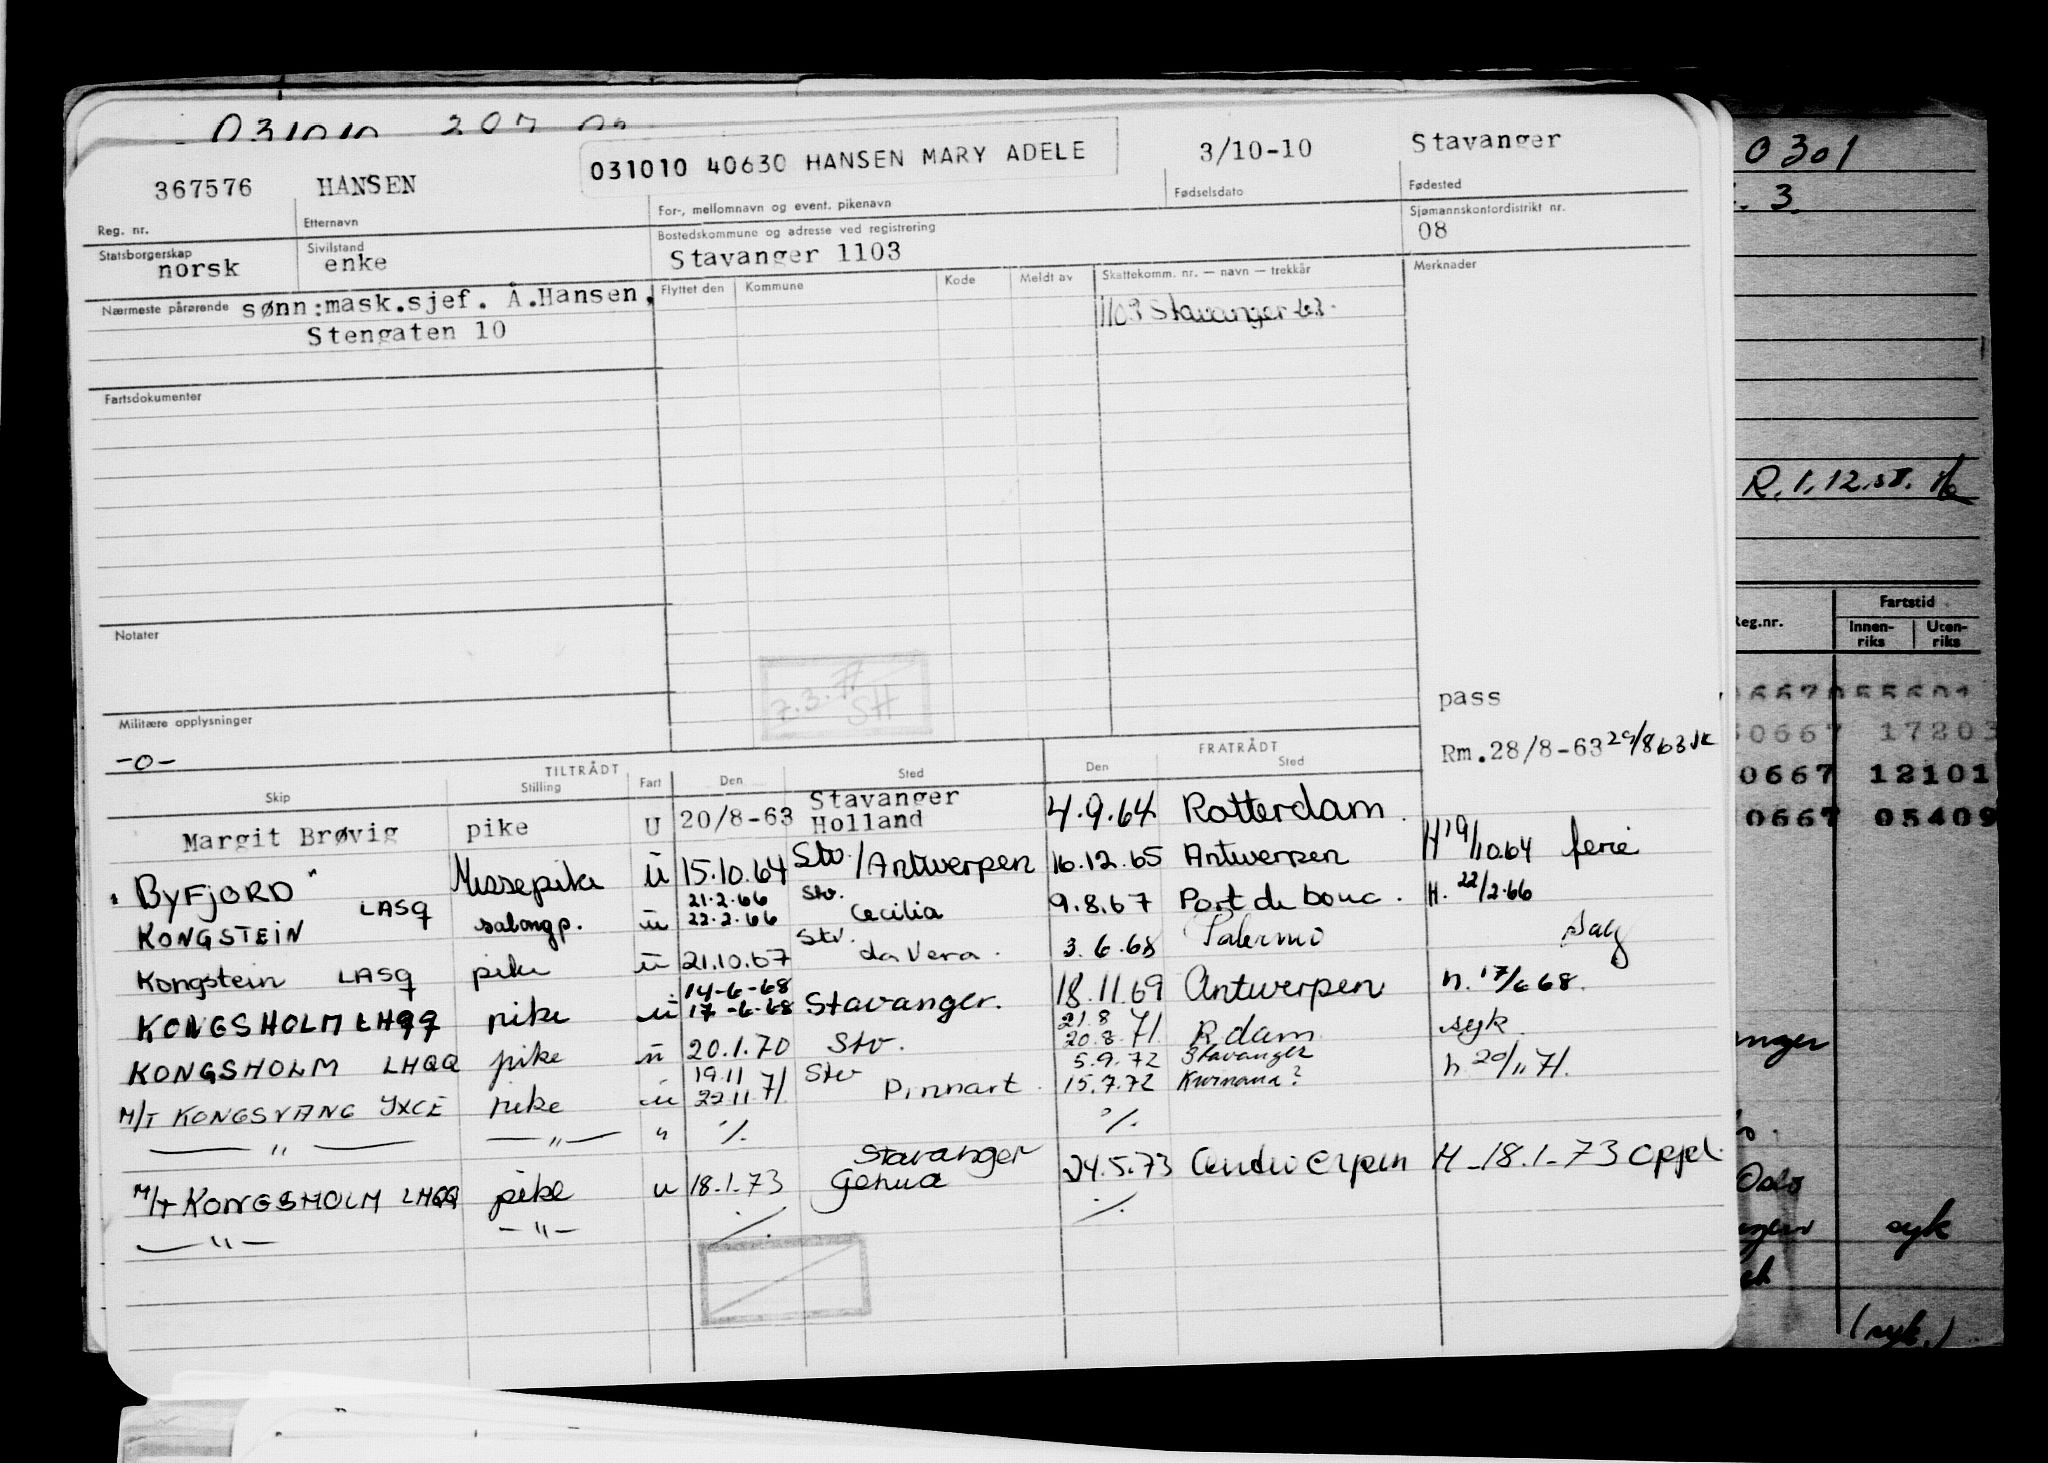 367576 HANSEN 031010 40630 HANSEN MARY ADELE 3/10-10 Stavanger
Reg. nr. Etternavn For-, mellomnavn og event. pikenavn Fødselsdato Fødested
Statsborgerskap norsk Sivilstand enke Bostedskommune og adresse ved registrering Stavanger 1103 Sjømannskontordistrikt nr. 08
Nærmeste pårørende sønn:mask.sjef. Å.Hansen, Flyttet den Kommune Kode Meldt av Skattekomm. nr. — navn — trekkår Merknader
Stengaten 10 1103 Stavanger 63.
Fartsdokumenter
Notater
7.3.77
SH
pass
Militære opplysninger
-o-
Rm.28/8-63 29/8 63
TILTRÅDT FRATRÅDT
Skip Stilling Fart Den Sted Den Sted
Margit Brøvig pike U 20/8-63 Stavanger Holland 4.9.64 Rotterdam.
"BYFJORD" Messepike u 15.10.64 Stv./Antwerpen 16.12.65 Antwerpen H 19/10.64 ferie
KONGSTEIN LASQ salongp. u 21.2.66 22.2.66 Stv. Cecilia 9.8.67 Port de bouc. H. 22/2.66
Kongstein LASQ pike u 21.10.67 Stv. da Vera. 3.6.68 Palermo
KONGSHOLM LHQQ pike u 14-6-68 17-6-68 Stavanger. 18.11.69 Antwerpen h. 17/6 68.
KONGSHOLM LHQQ pike u 20.1.70 Stv. 21.8 20.8.71. R dam. syk.
M/T KONGSVANG JXCE pike u 19.11 22.11.71. Stv Pinnart. 5.9.72 15.7.72 Stavanger Kwinana? h 20/11 71.
— " — — " — " ./. ./.
M/T KONGSHOLM LHQQ pike u 18.1.73 Stavanger Genua 24.5.73 Antwerpen H-18.1-73 Oppl.
— " — — " — ./. ./.
0301
3.
R.1.12.
Reg.nr. Fartstid
Innen-riks Uten-riks
17203
0667 12101
0667 05409
Oslo
syk
(syk.)